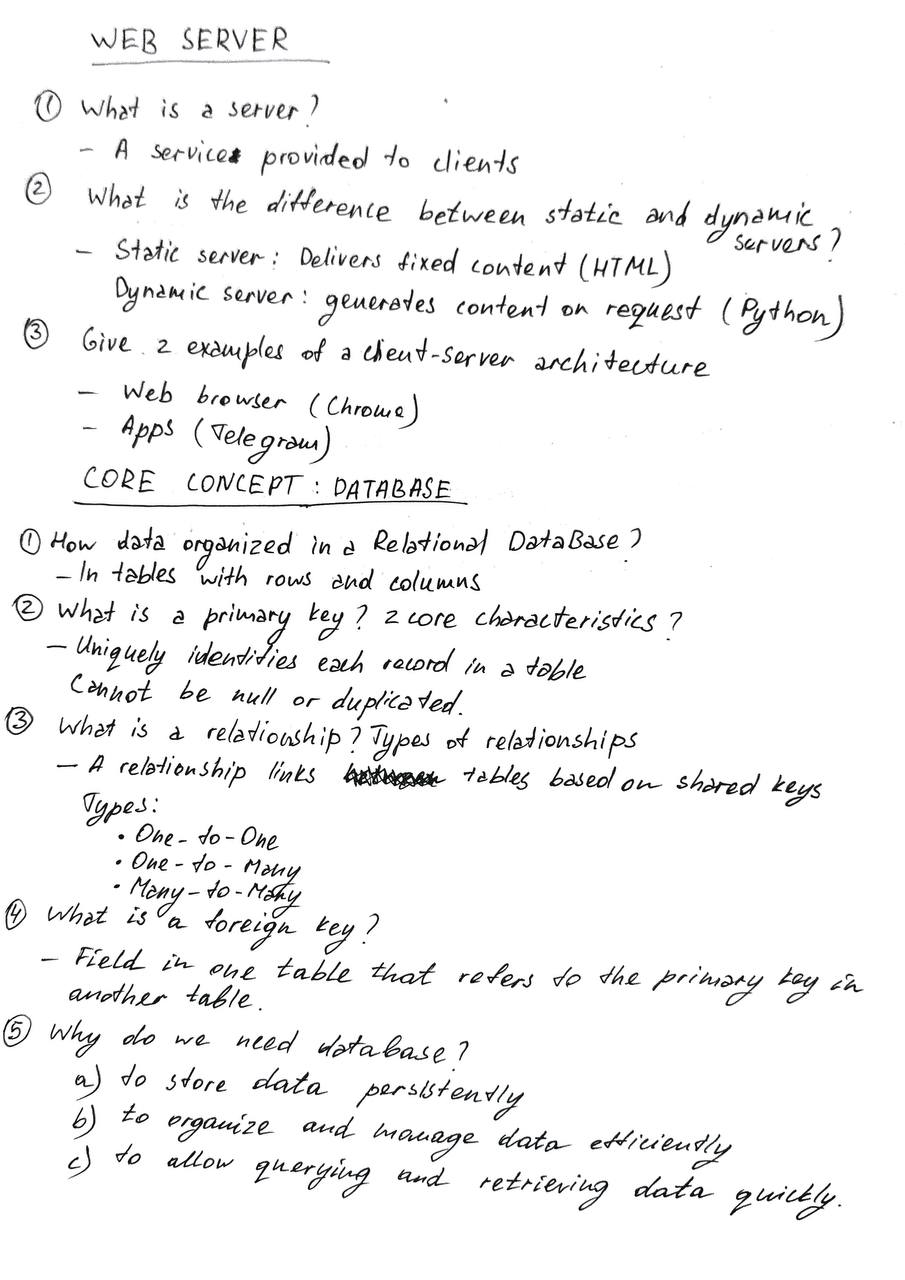 WEB SERVER
① What is a server?
- A service provided to clients
② What is the difference between static and dynamic
servers?
- Static server: Delivers fixed content (HTML)
Dynamic server: generates content on request (Python)
③ Give 2 examples of a client-server architecture
- Web browser (Chrome)
- Apps (Telegram)
CORE CONCEPT: DATABASE
① How data organized in a Relational DataBase?
- In tables with rows and columns
② What is a primary key? 2 core characteristics?
- Uniquely identifies each record in a table
Cannot be null or duplicated.
③ What is a relationship? Types of relationships
- A relationship links tables based on shared keys
Types:
• One-to-One
• One-to-Many
• Many-to-Many
④ What is a foreign key?
- Field in one table that refers to the primary key in
another table.
⑤ Why do we need database?
a) to store data persistently
b) to organize and manage data efficiently
c) to allow querying and retrieving data quickly.